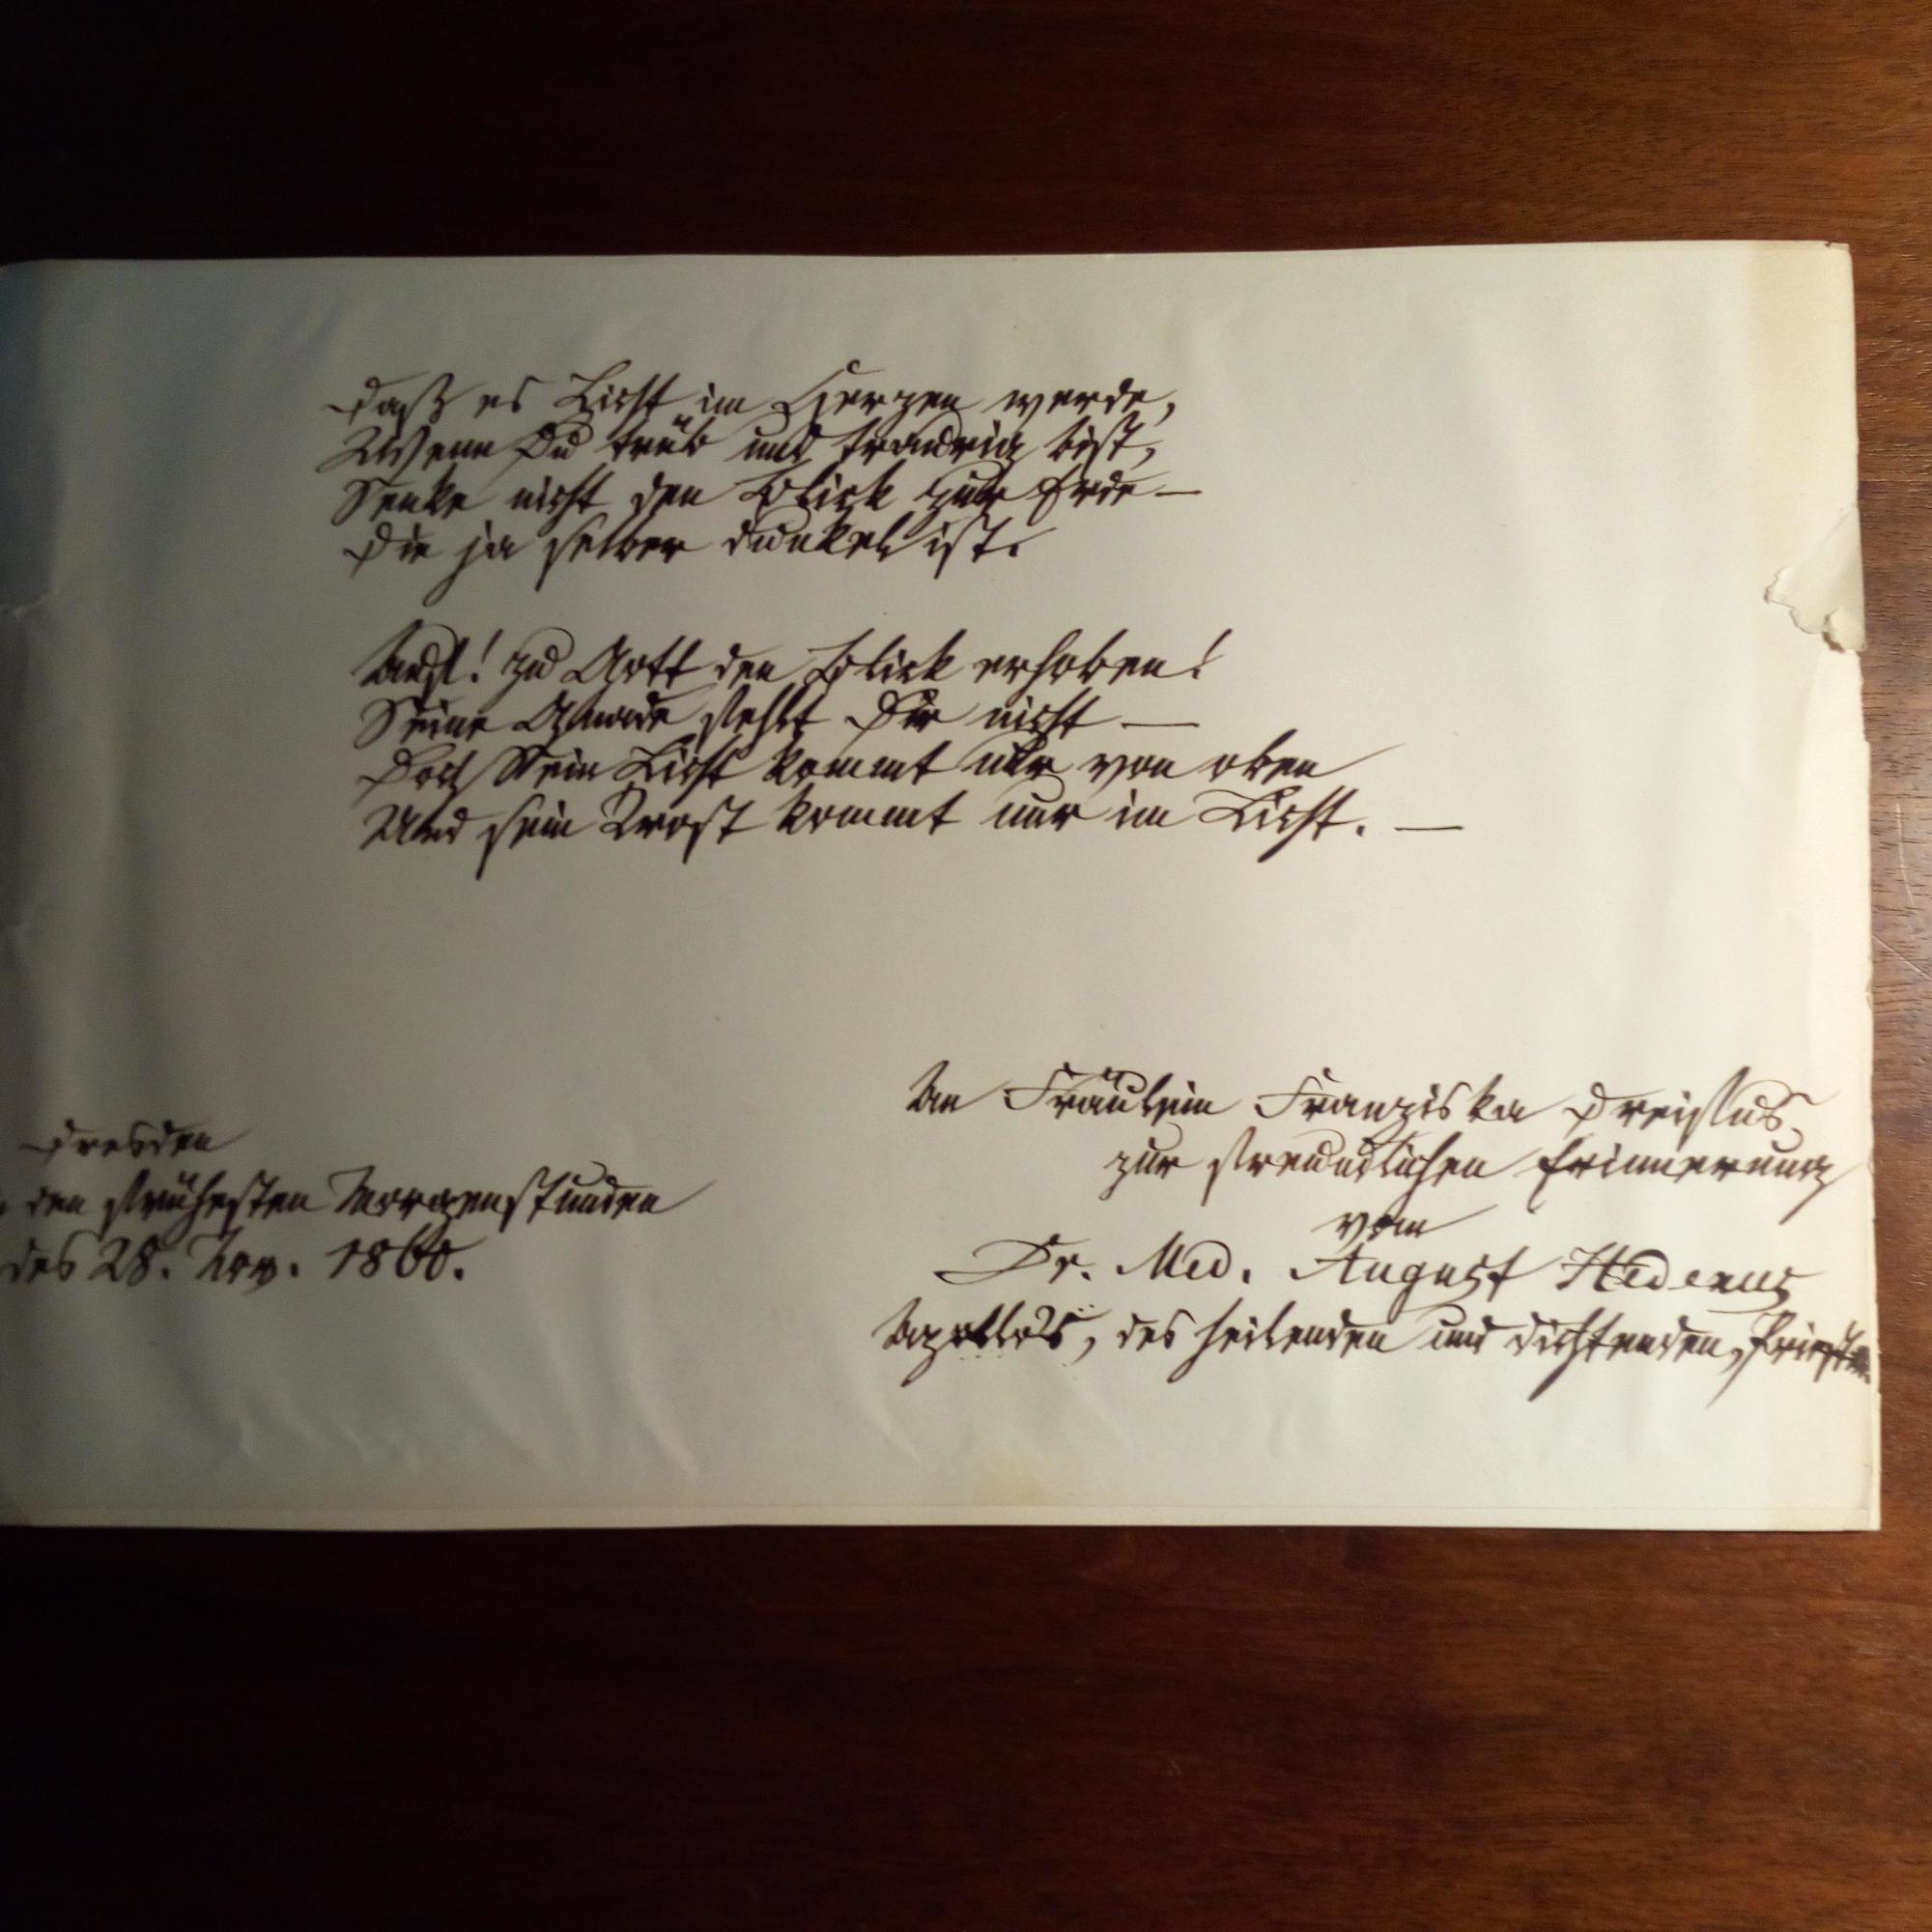 Daß es Licht im Herzen werde,
Wenn Du trüb und traurig bist,
Senke nicht den Blick zur Erde —
Die ja selber dunkel ist.
Auf! zu Gott den Blick erhoben!
Seine Gnade fehlt Dir nicht —
Doch Sein Licht kommt nur von oben
Und sein Trost kommt nur im Licht. —
Dresden
den frühesten Morgenstunden
des 28. Nov. 1860.
An Fräulein Franziska
zur freundlichen Erinnerung
vom
Dr. Med. August Hedenus
Apollo's, des heilenden und dichtenden,